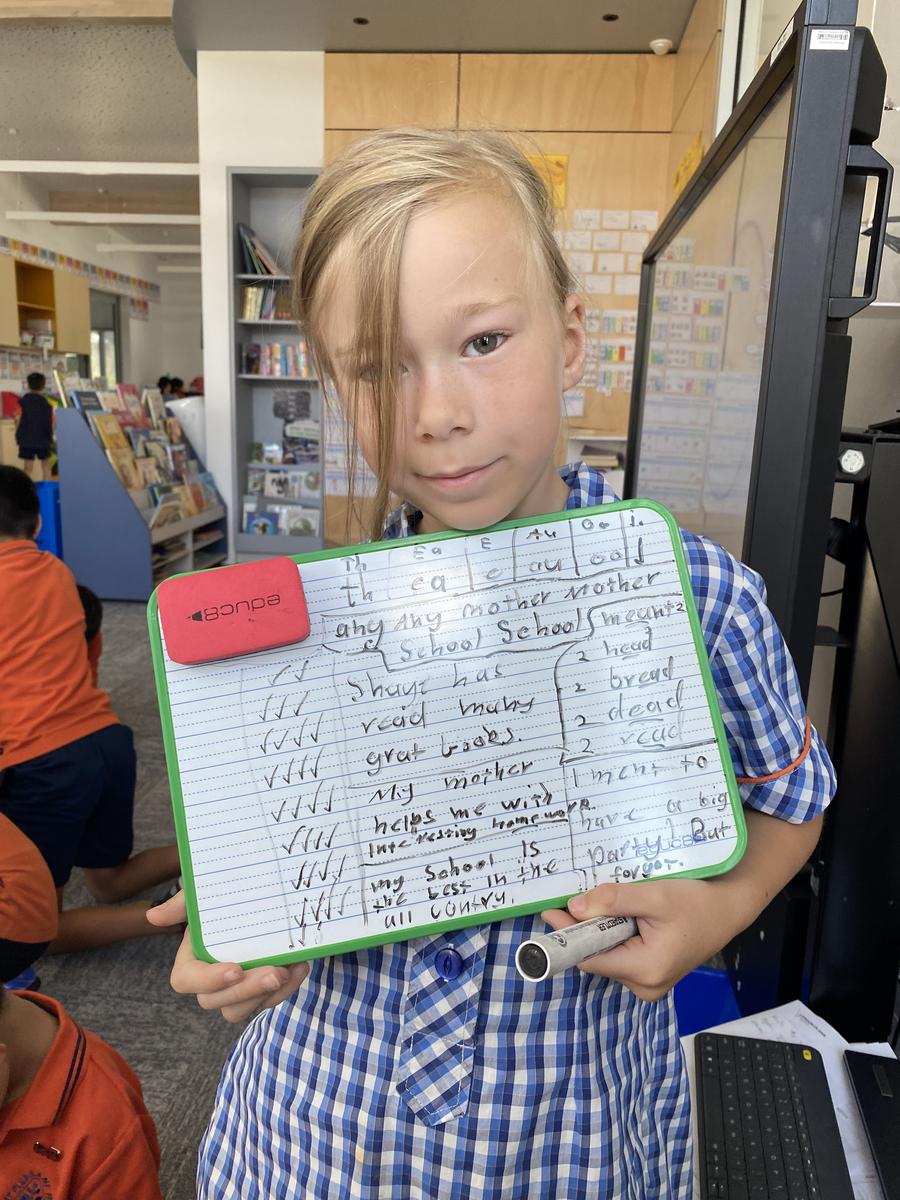 educ8
Th Ea E Au Oo i.
th ea e au oo i
any Any mother Mother
School School
meant 2
2 head
2 bread
2 dead
2 read
Shaye has
read many
grat books.
My mother
helps me with
Interesting homework.
my School is
the best in the
all contry.
I ment to
have a big
party! But
forgot.